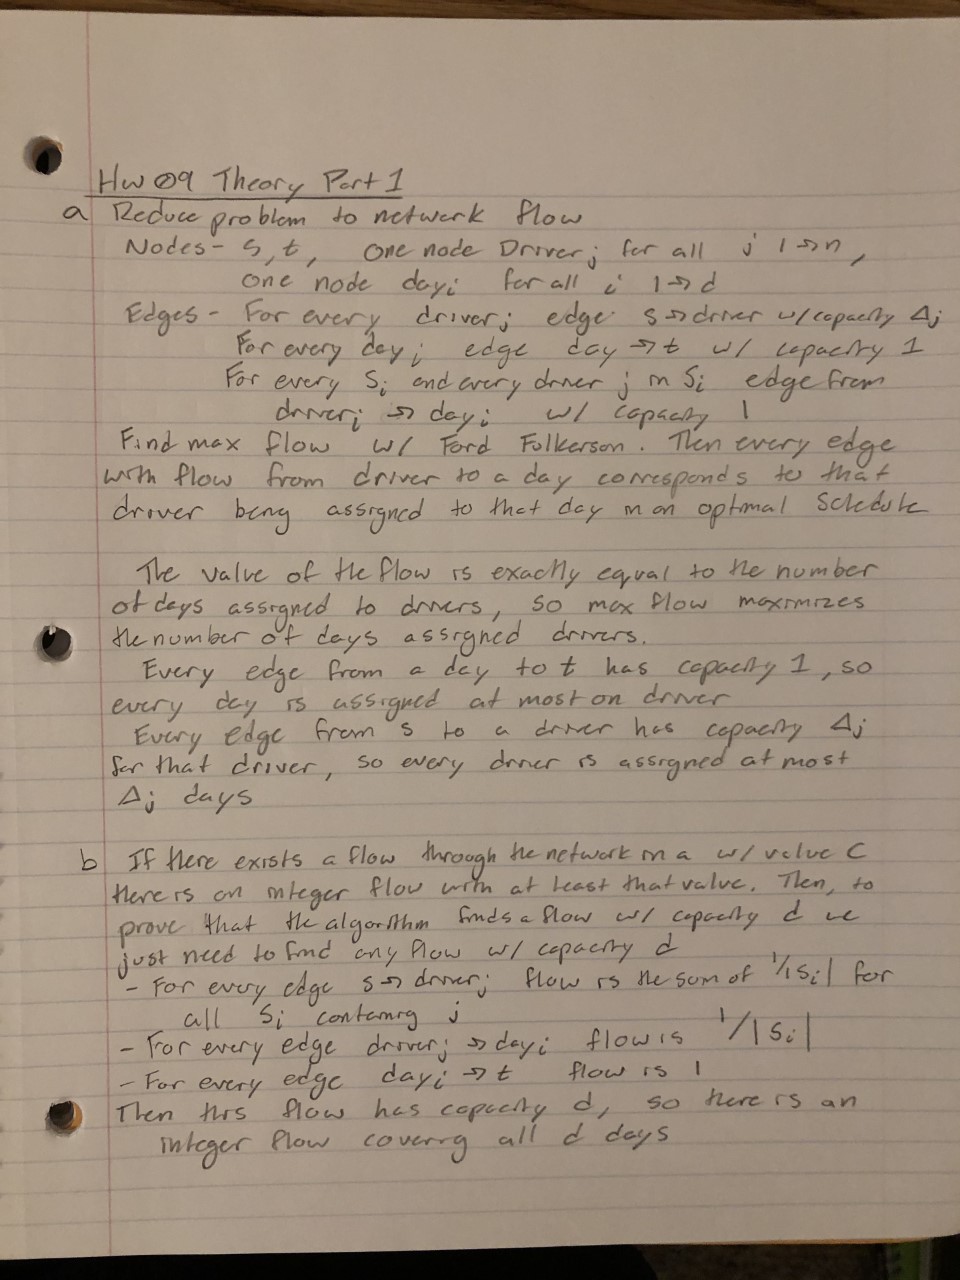 Hw 09 Theory Part 1
a Reduce problem to network flow
Nodes - s, t, one node Driverj for all j 1→n,
one node dayi for all i 1→d
Edges - For every driverj edge s→driver w/ capacity Δj
For every dayi edge day→t w/ capacity 1
For every Si and every driver j in Si edge from
driverj → dayi w/ capacity 1
Find max flow w/ Ford Fulkerson. Then every edge
with flow from driver to a day corresponds to that
driver being assigned to that day in an optimal schedule
The value of the flow is exactly equal to the number
of days assigned to drivers, so max flow maximizes
the number of days assigned drivers.
Every edge from a day to t has capacity 1, so
every day is assigned at most on driver
Every edge from s to a driver has capacity Δj
for that driver, so every driver is assigned at most
Δj days
b If there exists a flow through the network in a w/ value C
there is an integer flow with at least that value. Then, to
prove that the algorithm finds a flow w/ capacity d we
just need to find any flow w/ capacity d
- For every edge s→driverj flow is the sum of 1/|Si| for
all Si containing j
- For every edge driverj → dayi flow is 1/|Si|
- For every edge dayi → t flow is 1
Then this flow has capacity d, so there is an
integer flow covering all d days